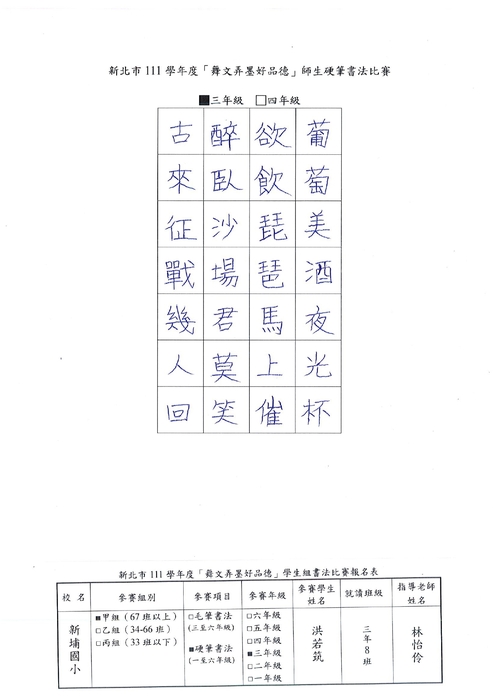 新北市111學年度「舞文弄墨好品德」師生硬筆書法比賽
■三年級 □四年級
葡萄美酒夜光杯
欲飲琵琶馬上催
醉臥沙場君莫笑
古來征戰幾人回
新北市111學年度「舞文弄墨好品德」學生組書法比賽報名表
校名 參賽組別 參賽項目 參賽年級 參賽學生姓名 就讀班級 指導老師姓名
新埔國小
■甲組(67班以上)
□乙組(34-66班)
□丙組(33班以下)
□毛筆書法
(三至六年級)
■硬筆書法
(一至六年級)
□六年級
□五年級
□四年級
■三年級
□二年級
□一年級
洪若筑
三年8班
林怡伶